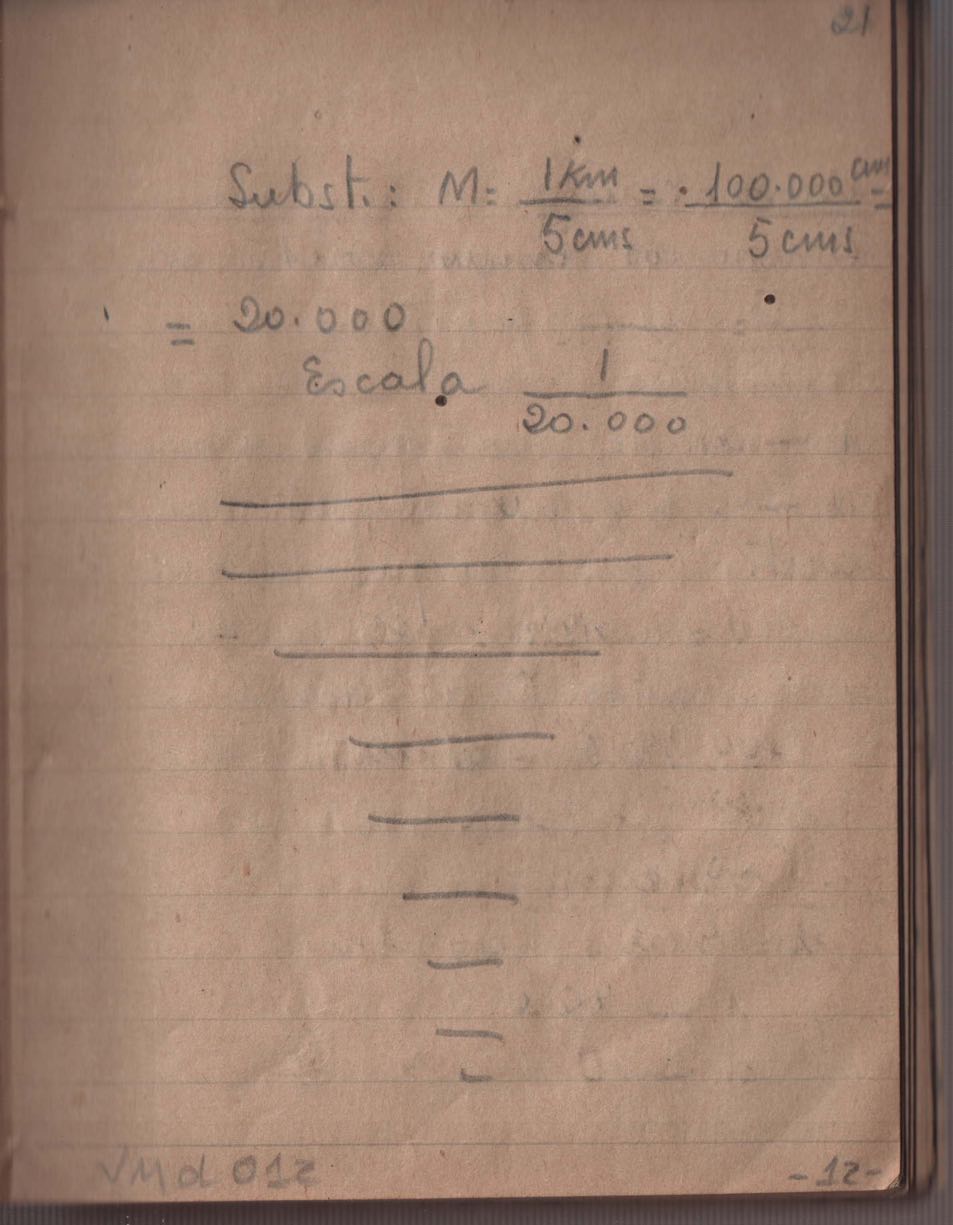 21
Subst.: M = 1 Km / 5 cms = 100.000 cm / 5 cms =
= 20.000
Escala 1 / 20.000
VMd 012
-12-